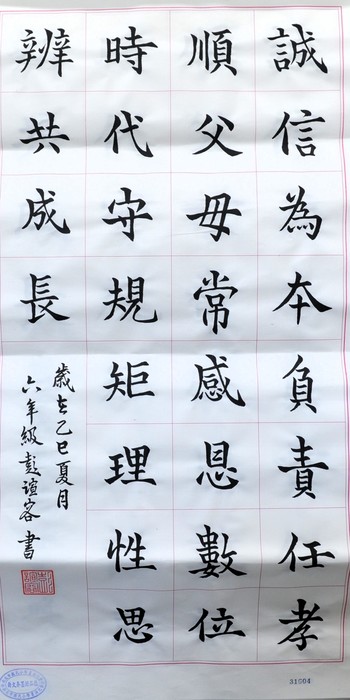 誠信為本負責任孝
順父毋常感恩數位
時代守規矩理性思
辨共成長
歲在乙巳夏月
六年級彭誼客書
31004